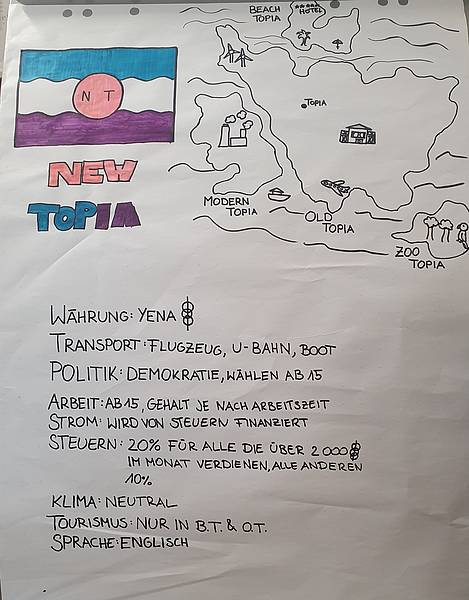 BEACH
TOPIA
HOTEL
N T
TOPIA
NEW
TOPIA
MODERN
TOPIA
OLD
TOPIA
ZOO
TOPIA
WÄHRUNG: YENA
TRANSPORT: FLUGZEUG, U-BAHN, BOOT
POLITIK: DEMOKRATIE, WÄHLEN AB 15
ARBEIT: AB 15, GEHALT JE NACH ARBEITSZEIT
STROM: WIRD VON STEUERN FINANZIERT
STEUERN: 20% FÜR ALLE DIE ÜBER 2000
IM MONAT VERDIENEN, ALLE ANDEREN
10%
KLIMA: NEUTRAL
TOURISMUS: NUR IN B.T. & O.T.
SPRACHE: ENGLISCH